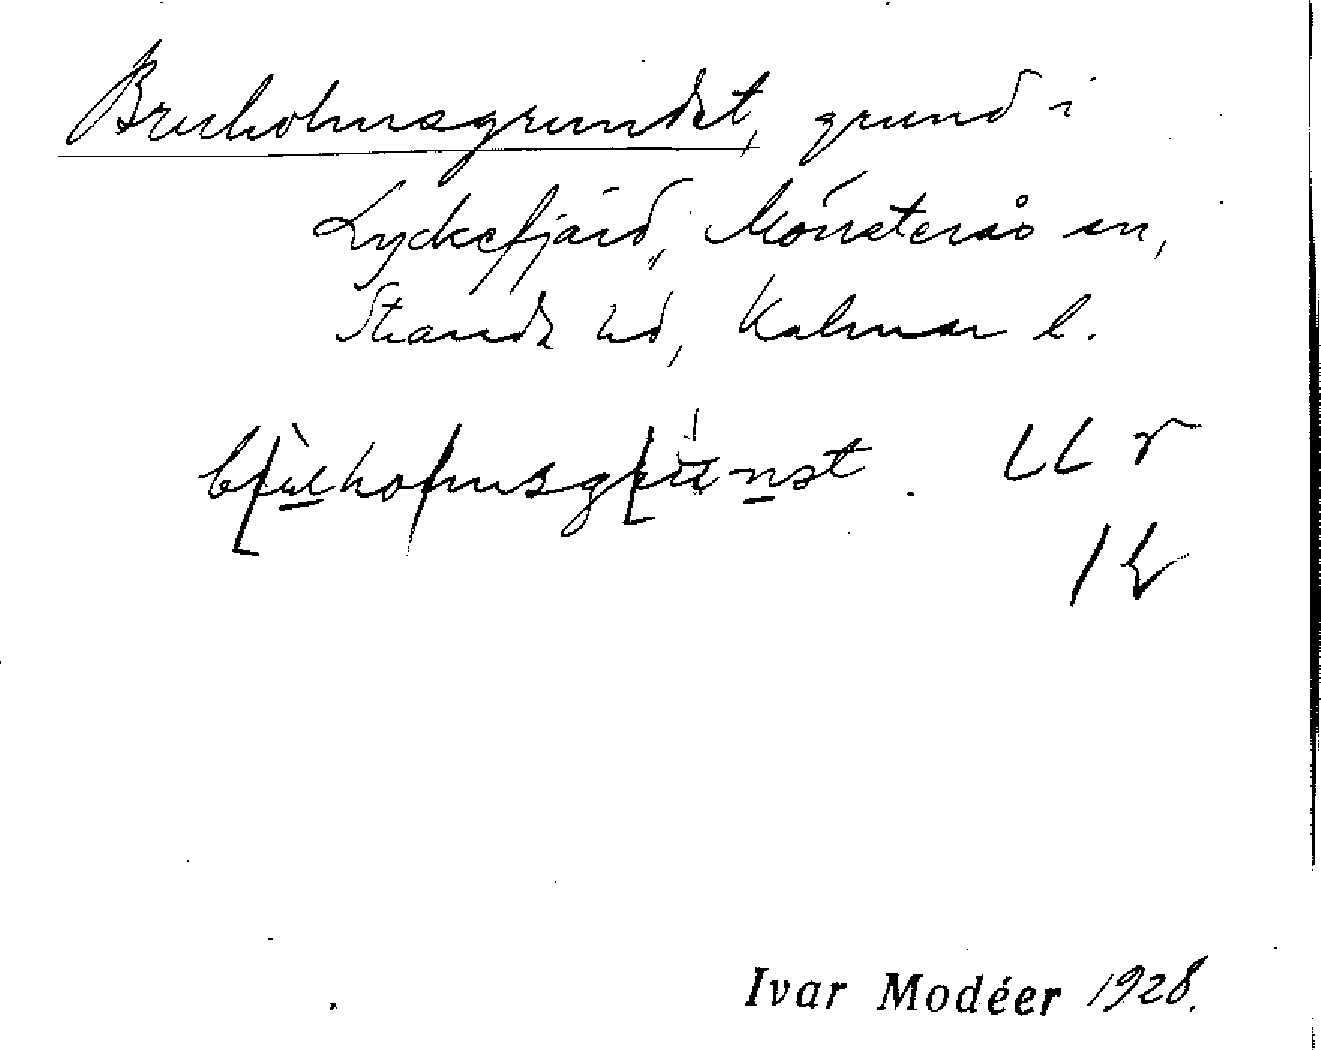 Bruholmsgrundet, grund i
Lyckefjärd, Mönsterås sn,
Stranda hd, Kalmar l.
Ivar Modéer 1928.